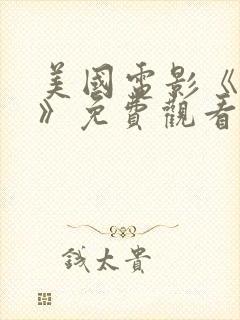 美國電影《
》免費觀看
錢太貴